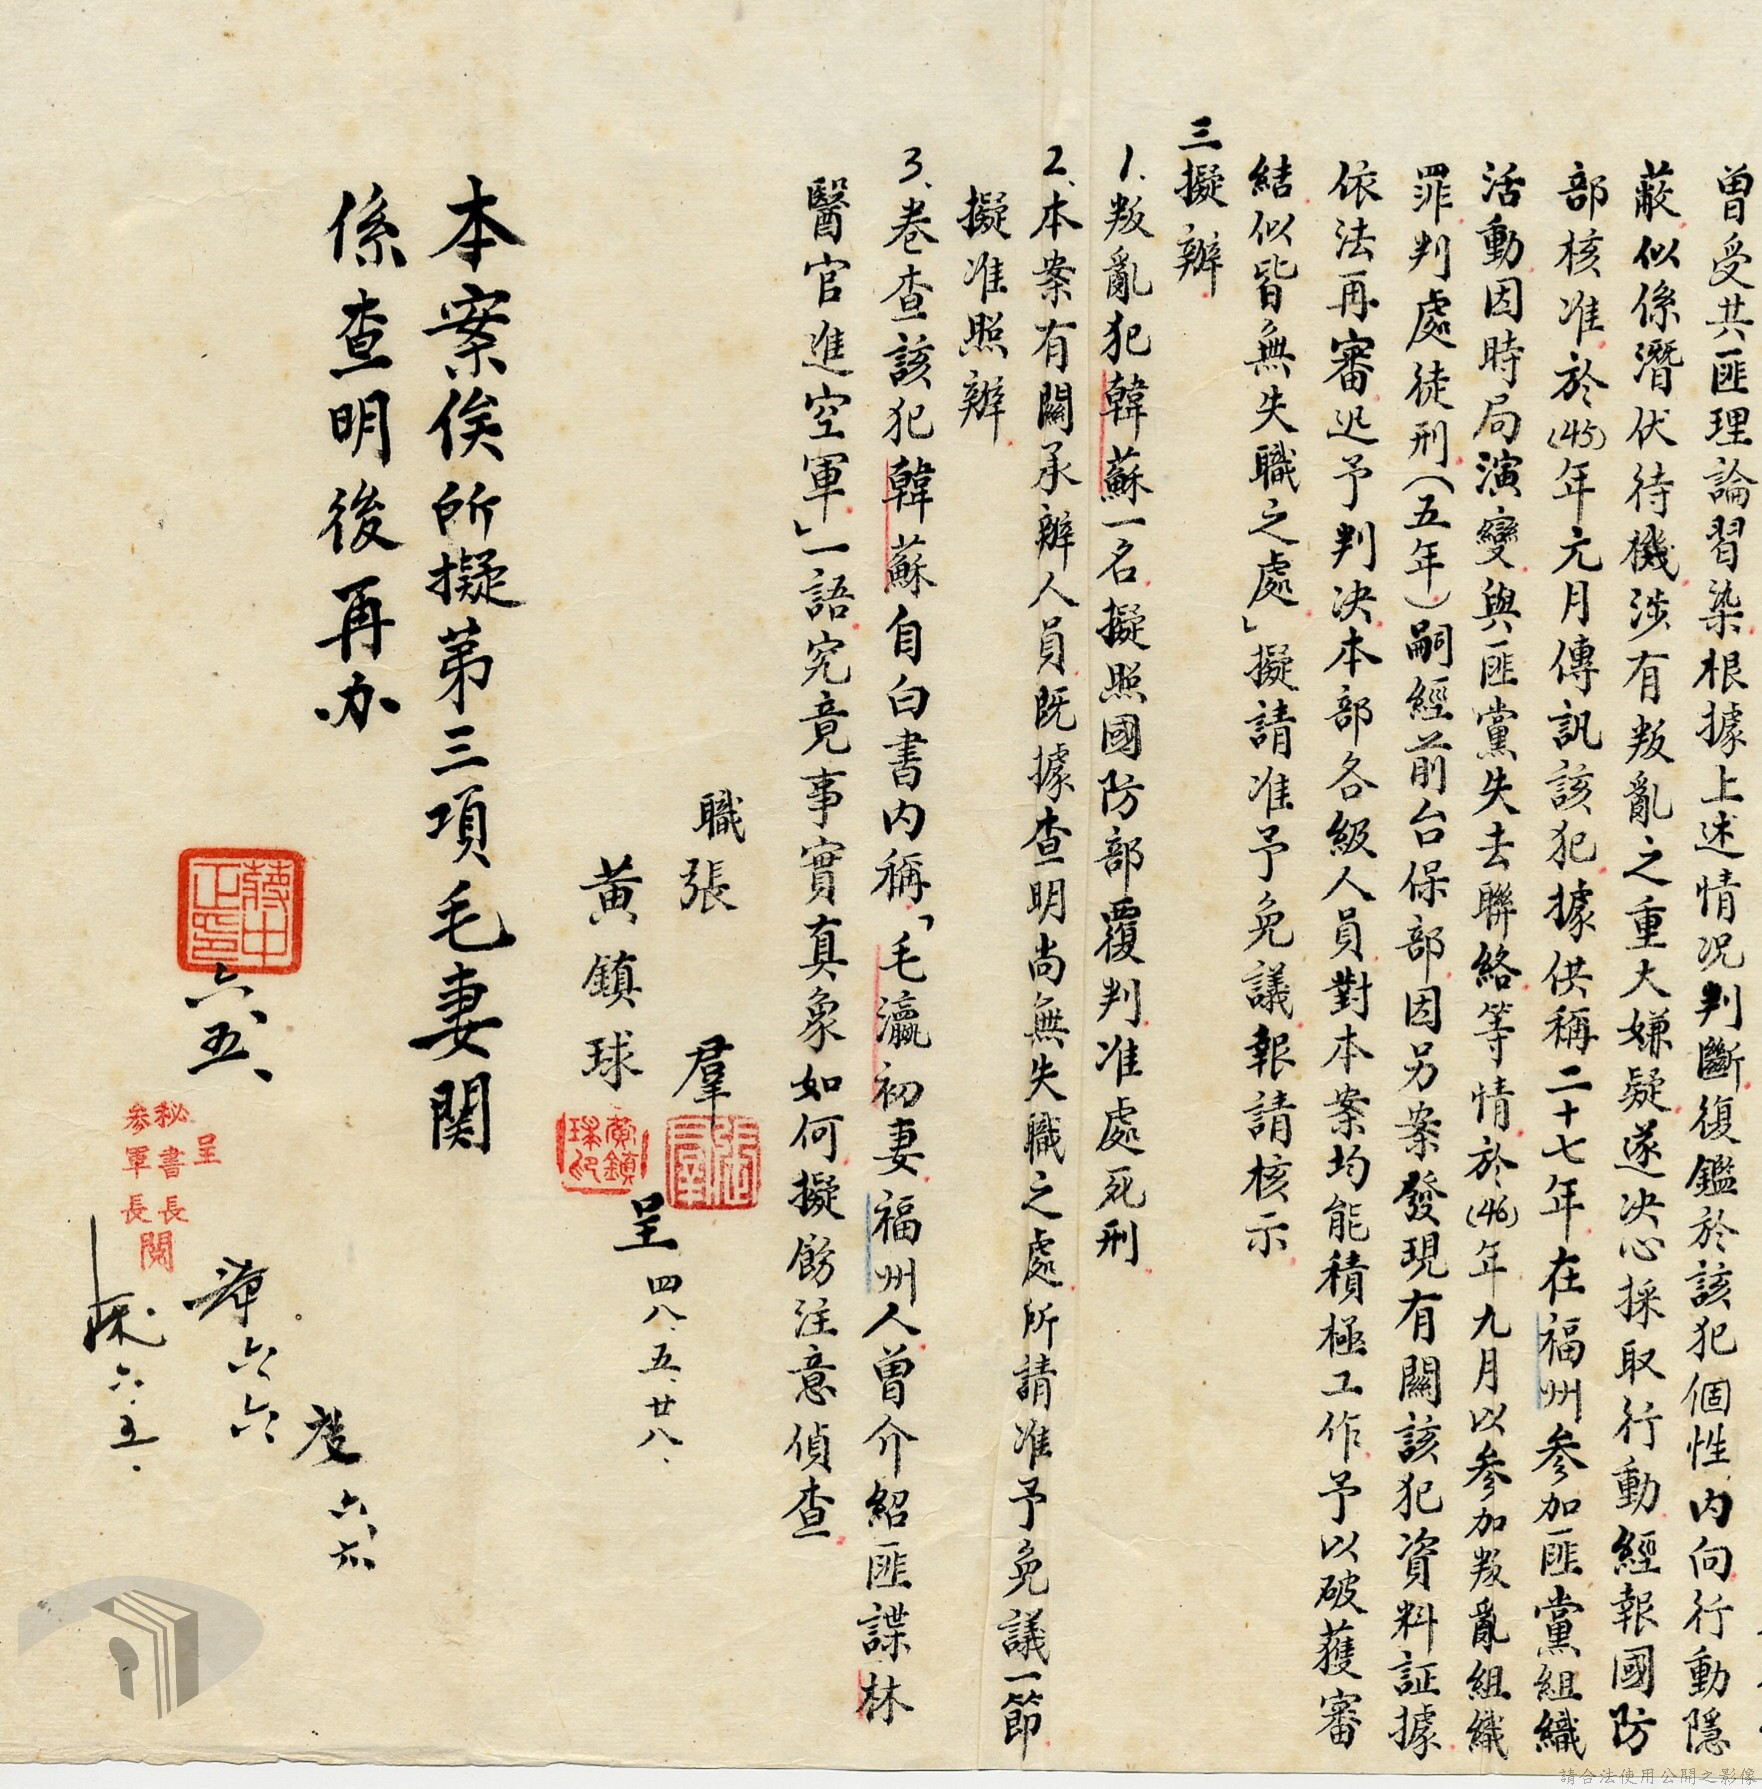 曾受共匪理論習染根據上述情況判斷復鑑於該犯個性內向行動隱
蔽似係潛伏待機涉有叛亂之重大嫌疑遂決心採取行動經報國防
部核准於(45)年元月傳訊該犯據供稱二十七年在福州參加匪黨組織
活動因時局演變與匪黨失去聯絡等情於(46)年九月以參加叛亂組織
罪判處徒刑(五年)嗣經前台保部因另案發現有關該犯資料証據
依法再審迅予判決本部各級人員對本案均能積極工作予以破獲審
結似皆無失職之處」擬請准予免議報請核示
三擬辦
1.叛亂犯韓蘇一名擬照國防部覆判准處死刑
2.本案有關承辦人員既據查明尚無失職之處所請准予免議一節
擬准照辦
3.卷查該犯韓蘇自白書內稱「毛瀛初妻福州人曾介紹匪諜林
醫官進空軍」一語究竟事實真象如何擬飭注意偵查
職張羣
黃鎮球
呈四八.五.廿八.
張羣
黃鎮球印
本案俟所擬第三項毛妻関
係查明後再办
蔣中正印
六五、
呈
秘書長
參軍長
閱
六六
六.五.
請合法使用公開之影像